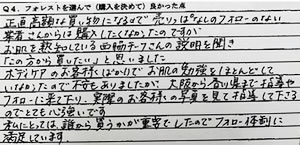 Q4. フォレストを選んで（購入を決めて）良かった点
正直高額な買い物になるので売りっぱなしのフォローのない
業者さんからは購入したくなかったのですが
お肌を熟知している西脇チーフさんの説明を聞き
「この方から買いたい」と思いました
ボディケアのお客様ばかりでお肌の勉強をほとんどして
いなかったので不安もありましたが、大阪から香川県まで指導や
フォローに来て下り、実際のお客様の写真を見て指導して下さる
のでとても心強いです
私にとっては、誰から買うかが重要でしたのでフォロー体制に
満足しています。